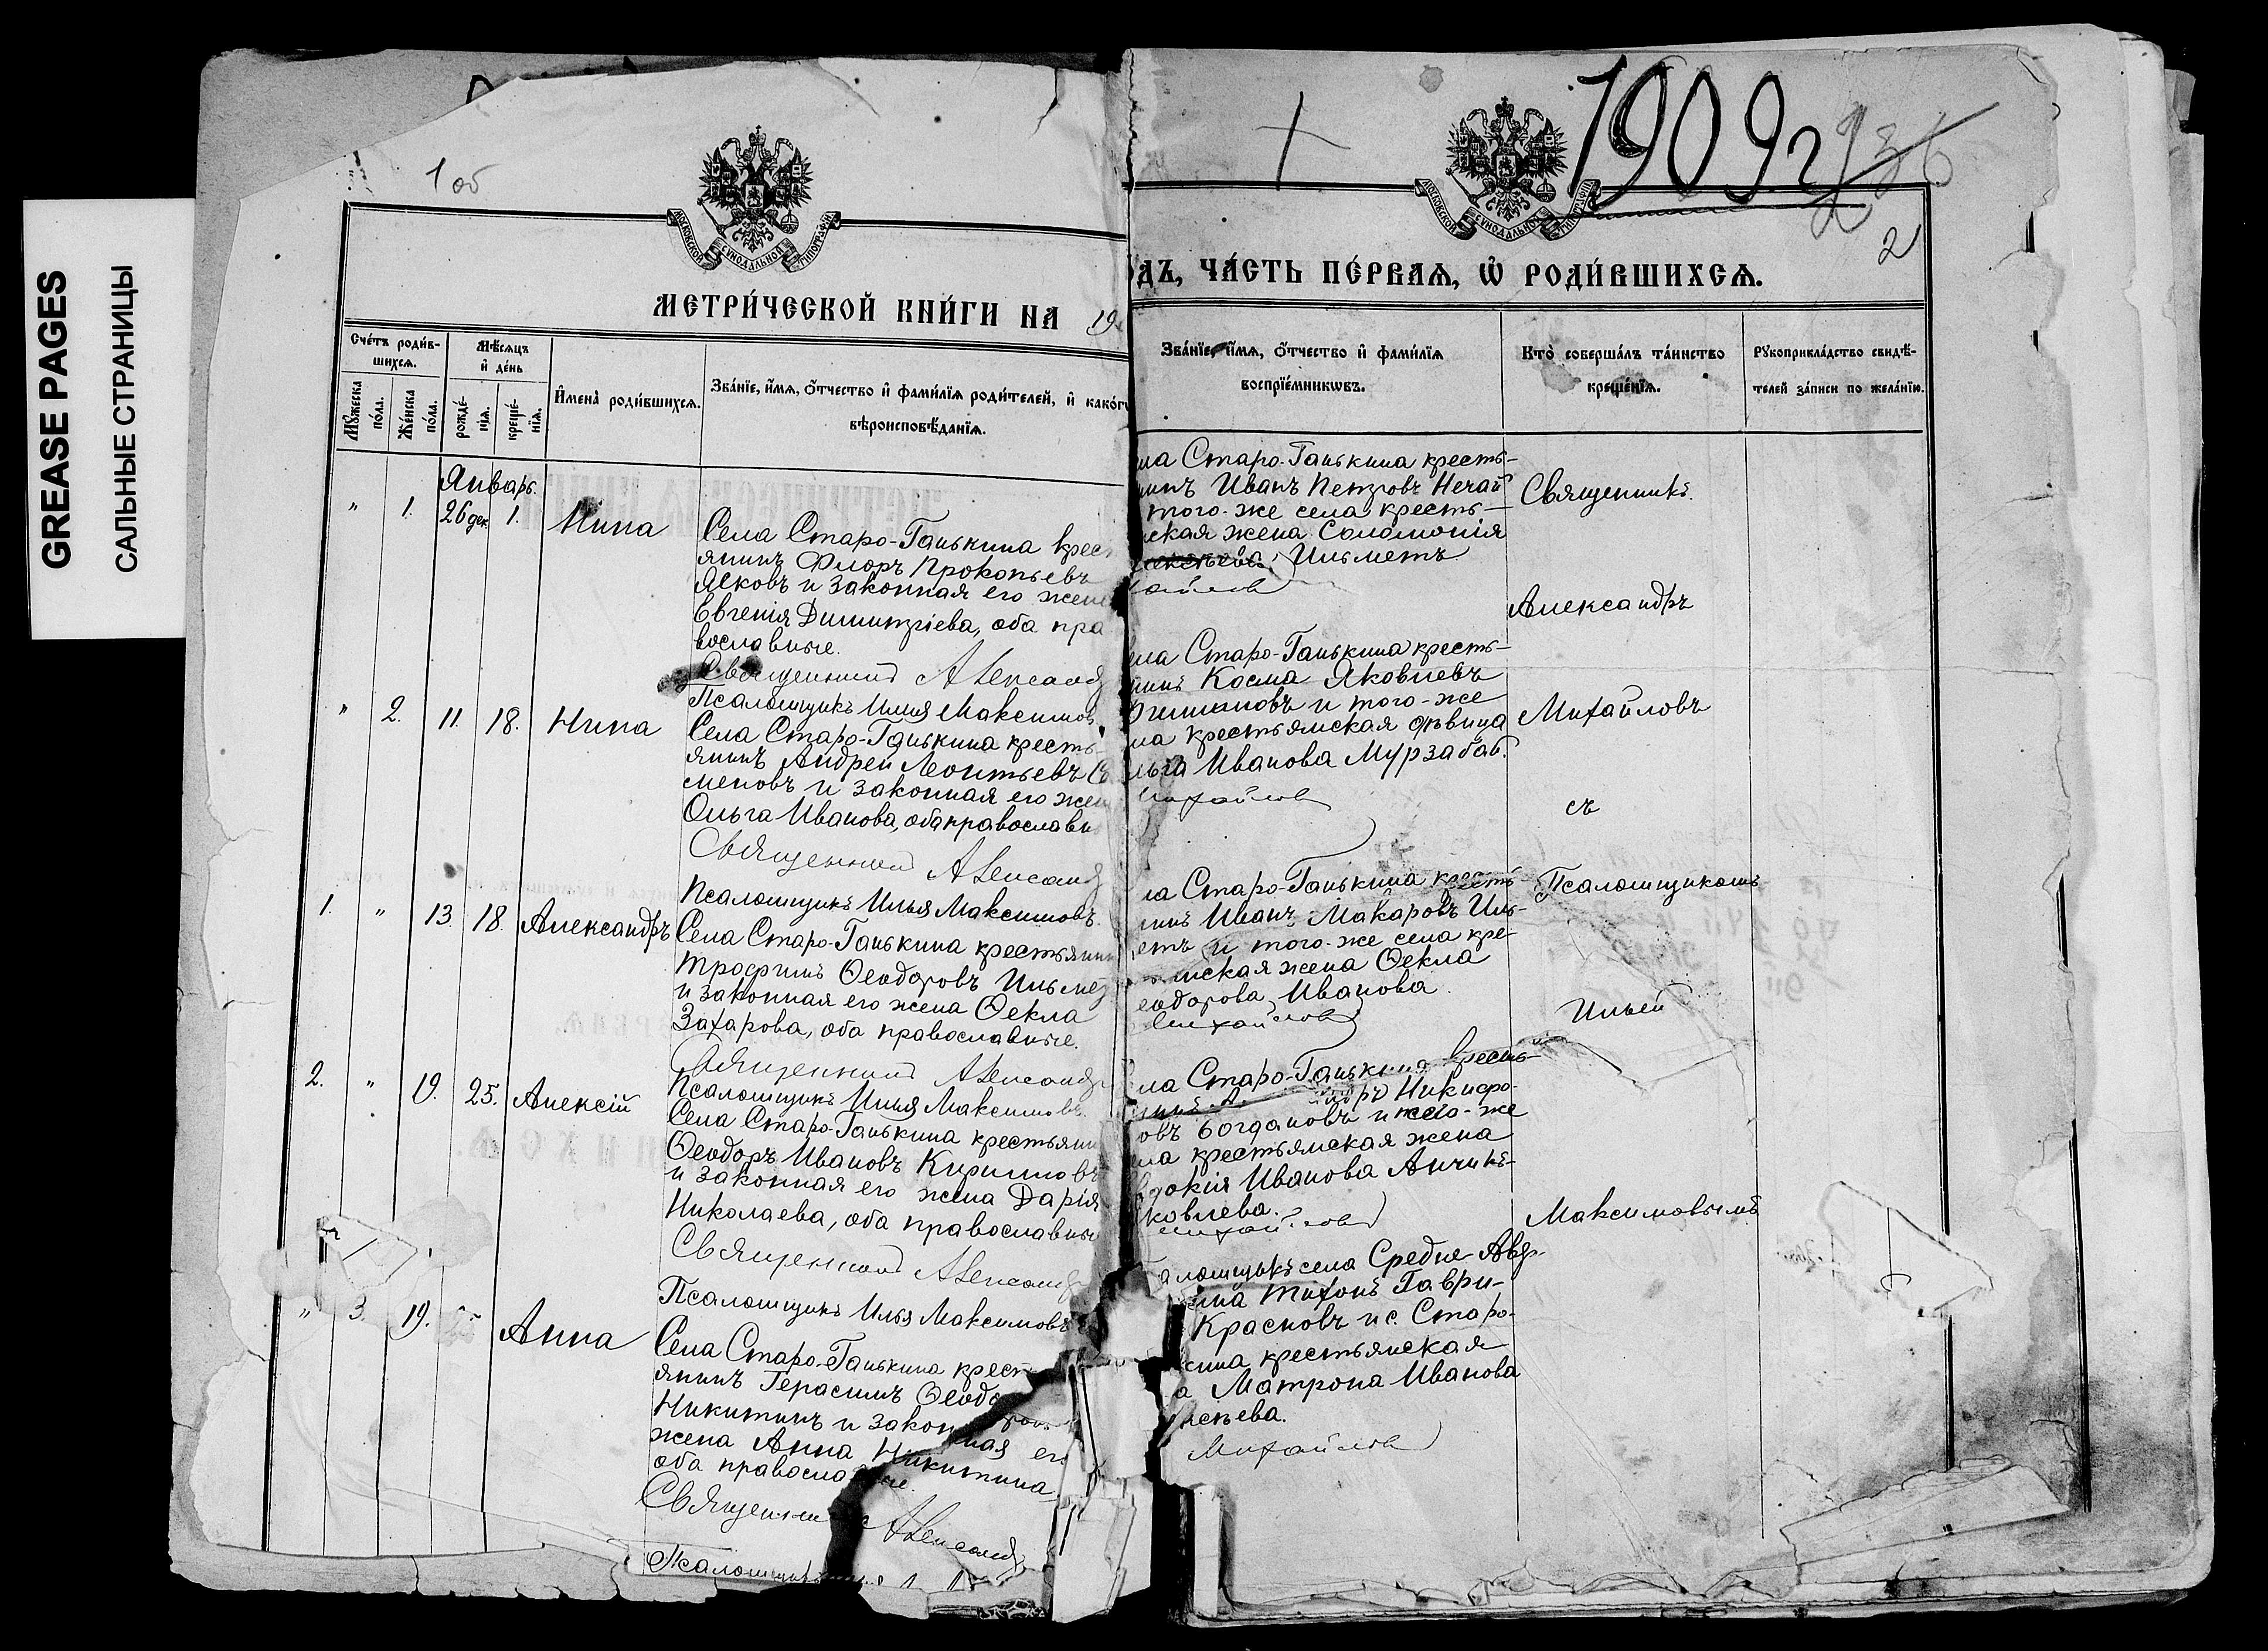 GREASE PAGES
САЛЬНЫЕ СТРАНИЦЫ
1 об
МОСКОВСКОЙ СѴНОДАЛЬНОЙ ТИПОГРАФІИ
МЕТРИ́ЧЕСКОЙ КНИ́ГИ НА 19
Сче́тъ роди́в-
шихсѧ.
Мѣ́сѧцъ
и҆ де́нь
Мꙋ́жеска
по́ла.
Же́нска
по́ла.
рожде́-
нїѧ.
креще́-
нїѧ.
И҆мена̀ роди́вшихсѧ.
Зва́нїе, и҆́мѧ, ѻ҆́тчество и҆ фами́лїѧ роди́телей, и҆ како́гѡ
вѣроисповѣ́данїѧ.
Январь.
" 1. 26 дек 1. Нина
Села Старо-Ганькина крес
янинъ Флоръ Прокопьевъ
Яковъ и законная его жена
Евгенія Димитріева, оба пра
вославные.
Священникъ Александ
Псаломщикъ Илья Максимов
" 2. 11. 18. Нина
Села Старо-Ганькина кресть-
янинъ Андрей Леонтьевъ Се
меновъ и законная его жен
Ольга Иванова, оба православн
Священникъ Александ
Псаломщикъ Илья Максимовъ
1. " 13. 18. Александръ
Села Старо-Ганькина крестьянин
Трофимъ Ѳеодоровъ Ильмет
и законная его жена Ѳекла
Захарова, оба православные.
Священникъ Александ
Псаломщикъ Илья Максимовъ.
2. " 19. 25. Алексій
Села Старо-Ганькина крестьянин
Ѳеодоръ Ивановъ Кирилловъ
и законная его жена Дарія
Николаева, оба православны
Священникъ Александ
Псаломщикъ Илья Максимовъ
" 3. 19. 25 Анна
Села Старо-Ганькина крест
янинъ Герасимъ Ѳеодоров
Никитинъ и законная ег
жена Анна Никитина
оба православные.
Священник Александ
Псаломщикъ
1909г
2
МОСКОВСКОЙ СѴНОДАЛЬНОЙ ТИПОГРАФІИ
ОДЪ, ЧА́СТЬ ПЕ́РВАѦ, Ѽ РОДИ́ВШИХСѦ.
Зва́нїе, и҆́мѧ, ѻ҆́тчество и҆ фами́лїѧ
воспрїе́мникѡвъ.
Кто̀ соверша́лъ та́инство
креще́нїѧ.
Рꙋкоприкла́дство свидѣ́-
телей за́писи по жела́нїю.
ла Старо-Ганькина кресть-
нинъ Иванъ Петровъ Нечай
того-же села кресть-
нская жена Соломонія
Ильметъ
хайлов
ела Старо-Ганькина кресть-
нинъ Косма Яковлевъ
и того-же
ла крестьянская дѣвица
льга Иванова Мурзабай.
Михайлов
ла Старо-Ганькина кресть
нинъ Иванъ Макаровъ Иль-
етъ и того-же села кре-
янская жена Ѳекла
еодорова Иванова.
Михайлов
ела Старо-Ганькина кресть-
Никифо-
овъ Богдановъ и того-же
ла крестьянская жена
вдокія Иванова
ковлева.
Михайлов
аломщикъ села Средне-Авер-
ина Тихонъ Гаври-
Красновъ и с. Старо-
кина крестьянская
а Матрона Иванова
Михайлов
Священникъ
Александръ
Михайловъ
съ
Псаломщикомъ
Ильей
Максимовымъ